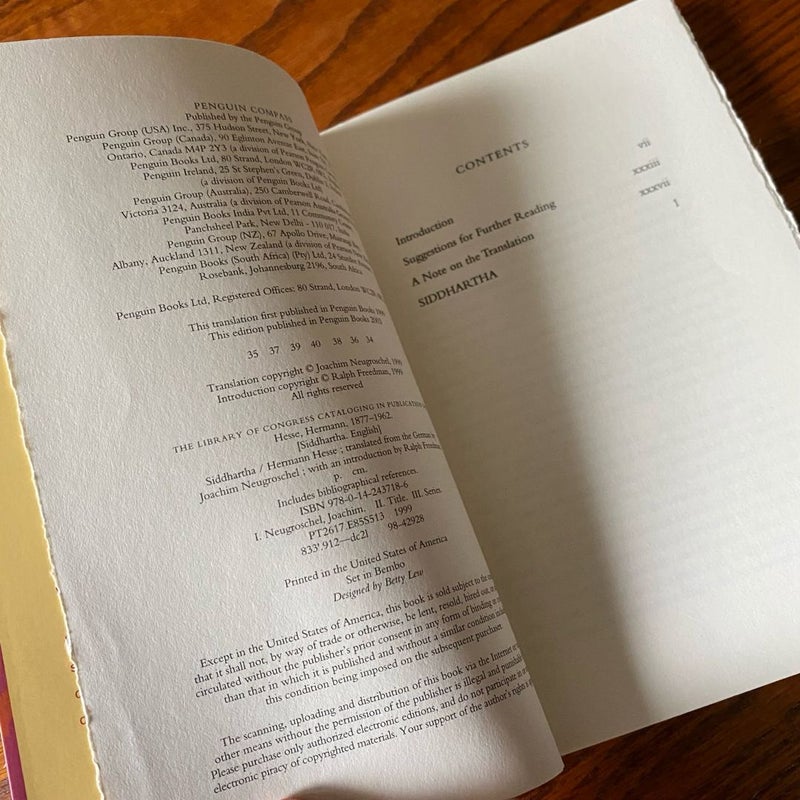 PENGUIN COMPASS
Published by the Penguin Group
Penguin Group (USA) Inc., 375 Hudson Street, New York,
Penguin Group (Canada), 90 Eglinton Avenue East,
Ontario, Canada M4P 2Y3 (a division of Pearson
Penguin Books Ltd, 80 Strand, London WC2R
Penguin Ireland, 25 St Stephen's Green, Dublin
(a division of Penguin Books Ltd)
Penguin Group (Australia), 250 Camberwell Road,
Victoria 3124, Australia (a division of Pearson Australia
Penguin Books India Pvt Ltd, 11 Community
Panchsheel Park, New Delhi - 110 017, India
Penguin Group (NZ), 67 Apollo Drive,
Albany, Auckland 1311, New Zealand (a division of Pearson New
Penguin Books (South Africa) (Pty) Ltd, 24
Rosebank, Johannesburg 2196, South Africa
Penguin Books Ltd, Registered Offices: 80 Strand, London WC2R
This translation first published in Penguin Books 1999
This edition published in Penguin Books
35 37 39 40 38 36 34
Translation copyright © Joachim Neugroschel, 1999
Introduction copyright © Ralph Freedman, 1999
All rights reserved
THE LIBRARY OF CONGRESS CATALOGING IN PUBLICATION
Hesse, Hermann, 1877–1962.
[Siddhartha. English]
Siddhartha / Hermann Hesse ; translated from the German by
Joachim Neugroschel ; with an introduction by Ralph Freedman.
p. cm.
Includes bibliographical references.
ISBN 978-0-14-243718-6
I. Neugroschel, Joachim. II. Title. III. Series.
PT2617.E85S513 1999
833'.912—dc21 98-42928
Printed in the United States of America
Set in Bembo
Designed by Betty Lew
Except in the United States of America, this book is sold subject to the
that it shall not, by way of trade or otherwise, be lent, resold, hired out,
circulated without the publisher's prior consent in any form of binding or
than that in which it is published and without a similar condition
this condition being imposed on the subsequent purchaser.
The scanning, uploading and distribution of this book via the Internet or
other means without the permission of the publisher is illegal and punishable
Please purchase only authorized electronic editions, and do not participate in
electronic piracy of copyrighted materials. Your support of the author's rights is
CONTENTS
Introduction vii
Suggestions for Further Reading xxxiii
A Note on the Translation xxxvii
SIDDHARTHA 1